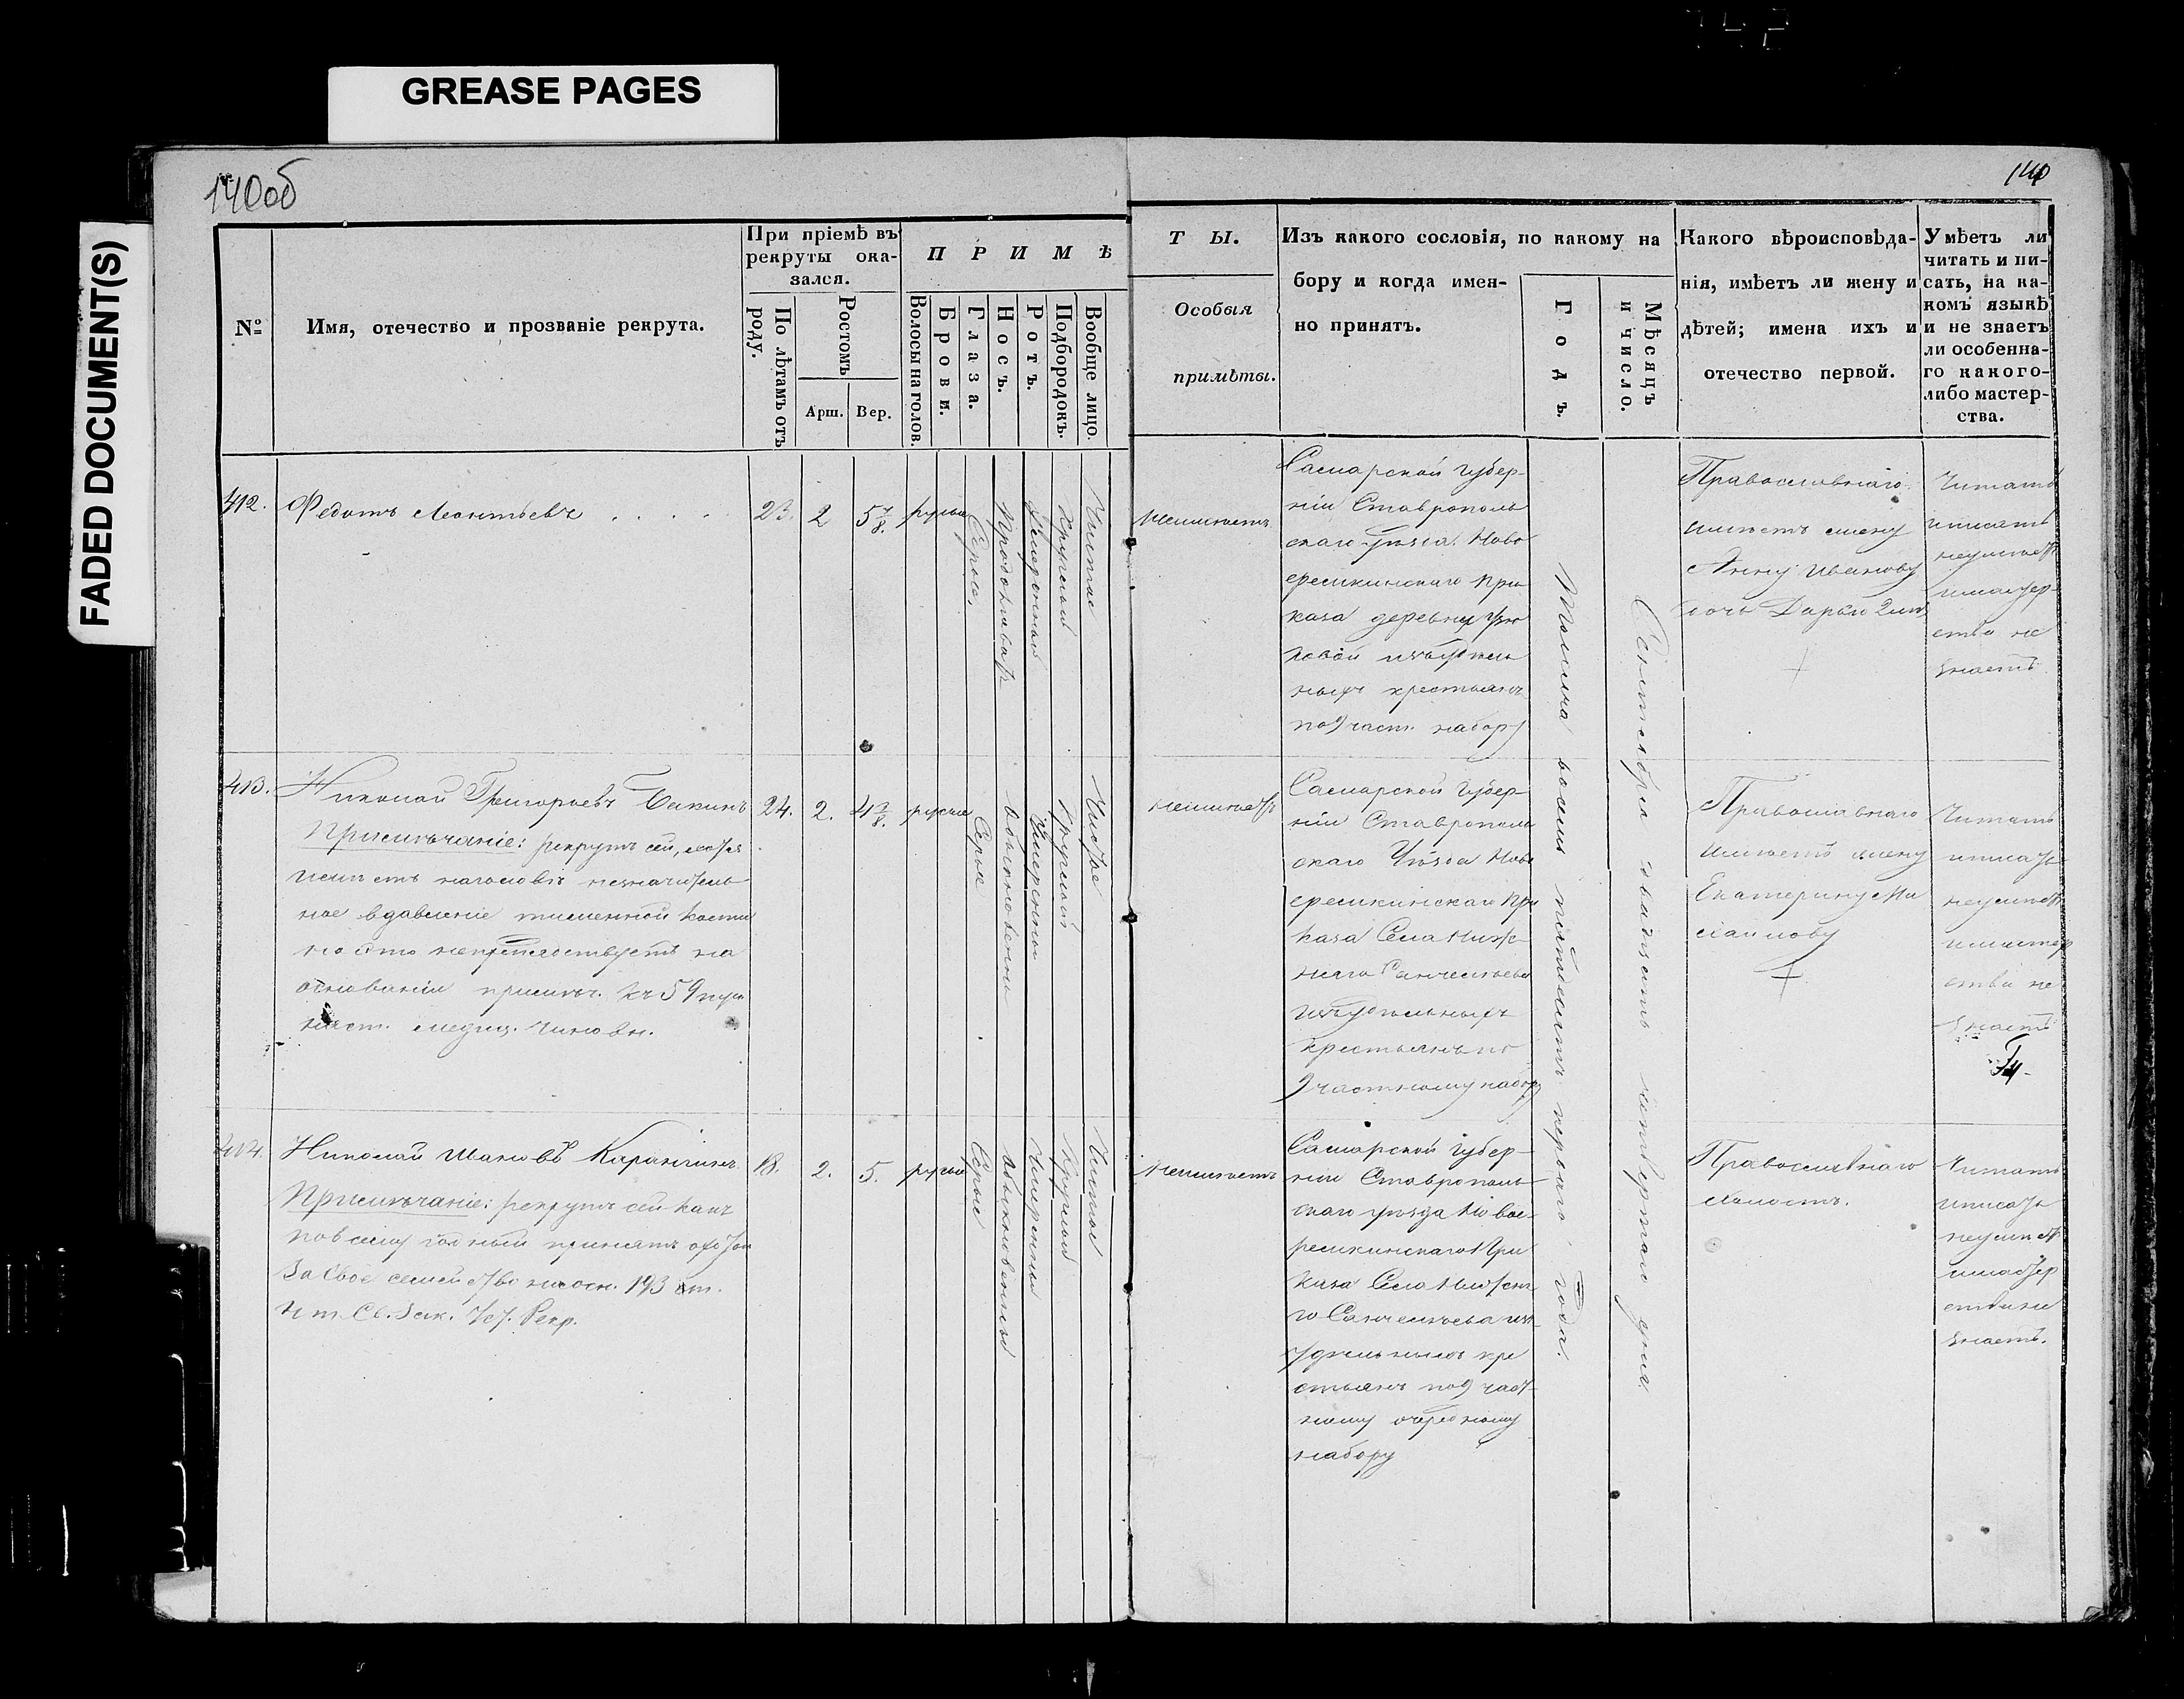 GREASE PAGES
FADED DOCUMENT(S)
140об
140
№
Имя, отечество и прозваніе рекрута.
При пріемѣ въ
рекруты ока-
зался.
По лѣтамъ отъ
роду.
Ростомъ
Арш.
Вер.
ПРИМѢ
Волосы на голов.
Брови.
Глаза.
Носъ.
Ротъ.
Подбородокъ.
Вообще лицо.
ТЫ.
Особыя
примѣты.
Изъ какого сословія, по какому на
бору и когда имен-
но принятъ.
Годъ.
Мѣсяцъ
и число.
Какого вѣроисповѣда-
нія, имѣетъ ли жену и
дѣтей; имена ихъ и
отечество первой.
Умѣетъ ли
читать и пи-
сать, на ка-
комъ языкѣ
и не знаетъ
ли особенна-
го какого-
либо мастер-
ства.
412.
Федотъ Леонтьевъ . . . . .
23.
2
5 7/8.
русые
Серые,
Продолговат
Умеренный
Круглый
Чистое
Неимѣетъ
Самарской Губер-
ніи Ставрополь
скаго Уѣзда. Ново
еремкинскаго При
каза деревни
изъ удѣль
ныхъ крестьянъ
по 9 част. набору
Тысяча восемь пятьдесятъ перваго года.
Сентября двадцать четвертаго дня.
Православнаго
имѣетъ жену
Анну Иванову
дочь Дарью 2 лѣт
Читать
и писать
неумѣетъ
и мастер-
ства не
знаетъ
413.
Николай Григорьевъ Бакинъ
Примѣчаніе: рекрутъ сей, хотя
имѣетъ наголовѣ незначитель
ное вдавленіе темянной кости
но это непрепядствуетъ на
основаніи примѣч. къ 59 пун
наст. медиц. чиновн.
24.
2.
4 7/8.
русые
Серые
Обыкновенно
Умеренный
Круглый
Чистое
неимѣетъ
Самарской Губер-
ніи Ставрополь
скаго Уѣзда Ново
еремкинскаго При
каза Села Ниж-
няго Санчелеева
изъ удѣльныхъ
крестьянъ по
9 частному набору
Православнаго
имѣетъ жену
Екатерину Ми
хайлову
Читать
и писать
неумѣетъ
и мастер
ства не
знаетъ
414.
Николай Карангинъ
Примѣчаніе: рекрутъ сей какъ
повсему годный принятъ
За свое семейство на осн. 193 ст.
4 т. Св. Зак. Уст. Рекр.
18.
2.
5.
русые
Серые
Обыкновенный
Умеренный
Круглый
Чистое
Неимѣетъ
Самарской Губер-
ніи Ставрополь-
скаго уѣзда Ново е-
ремкинскаго При
каза Села Нижня
го Санчелеева изъ
удѣльныхъ кре
стьянъ по 9 част-
ному очередному
набору
Православнаго
холостъ.
Читать
и писать
неумѣетъ
и мастер
ства не
знаетъ.